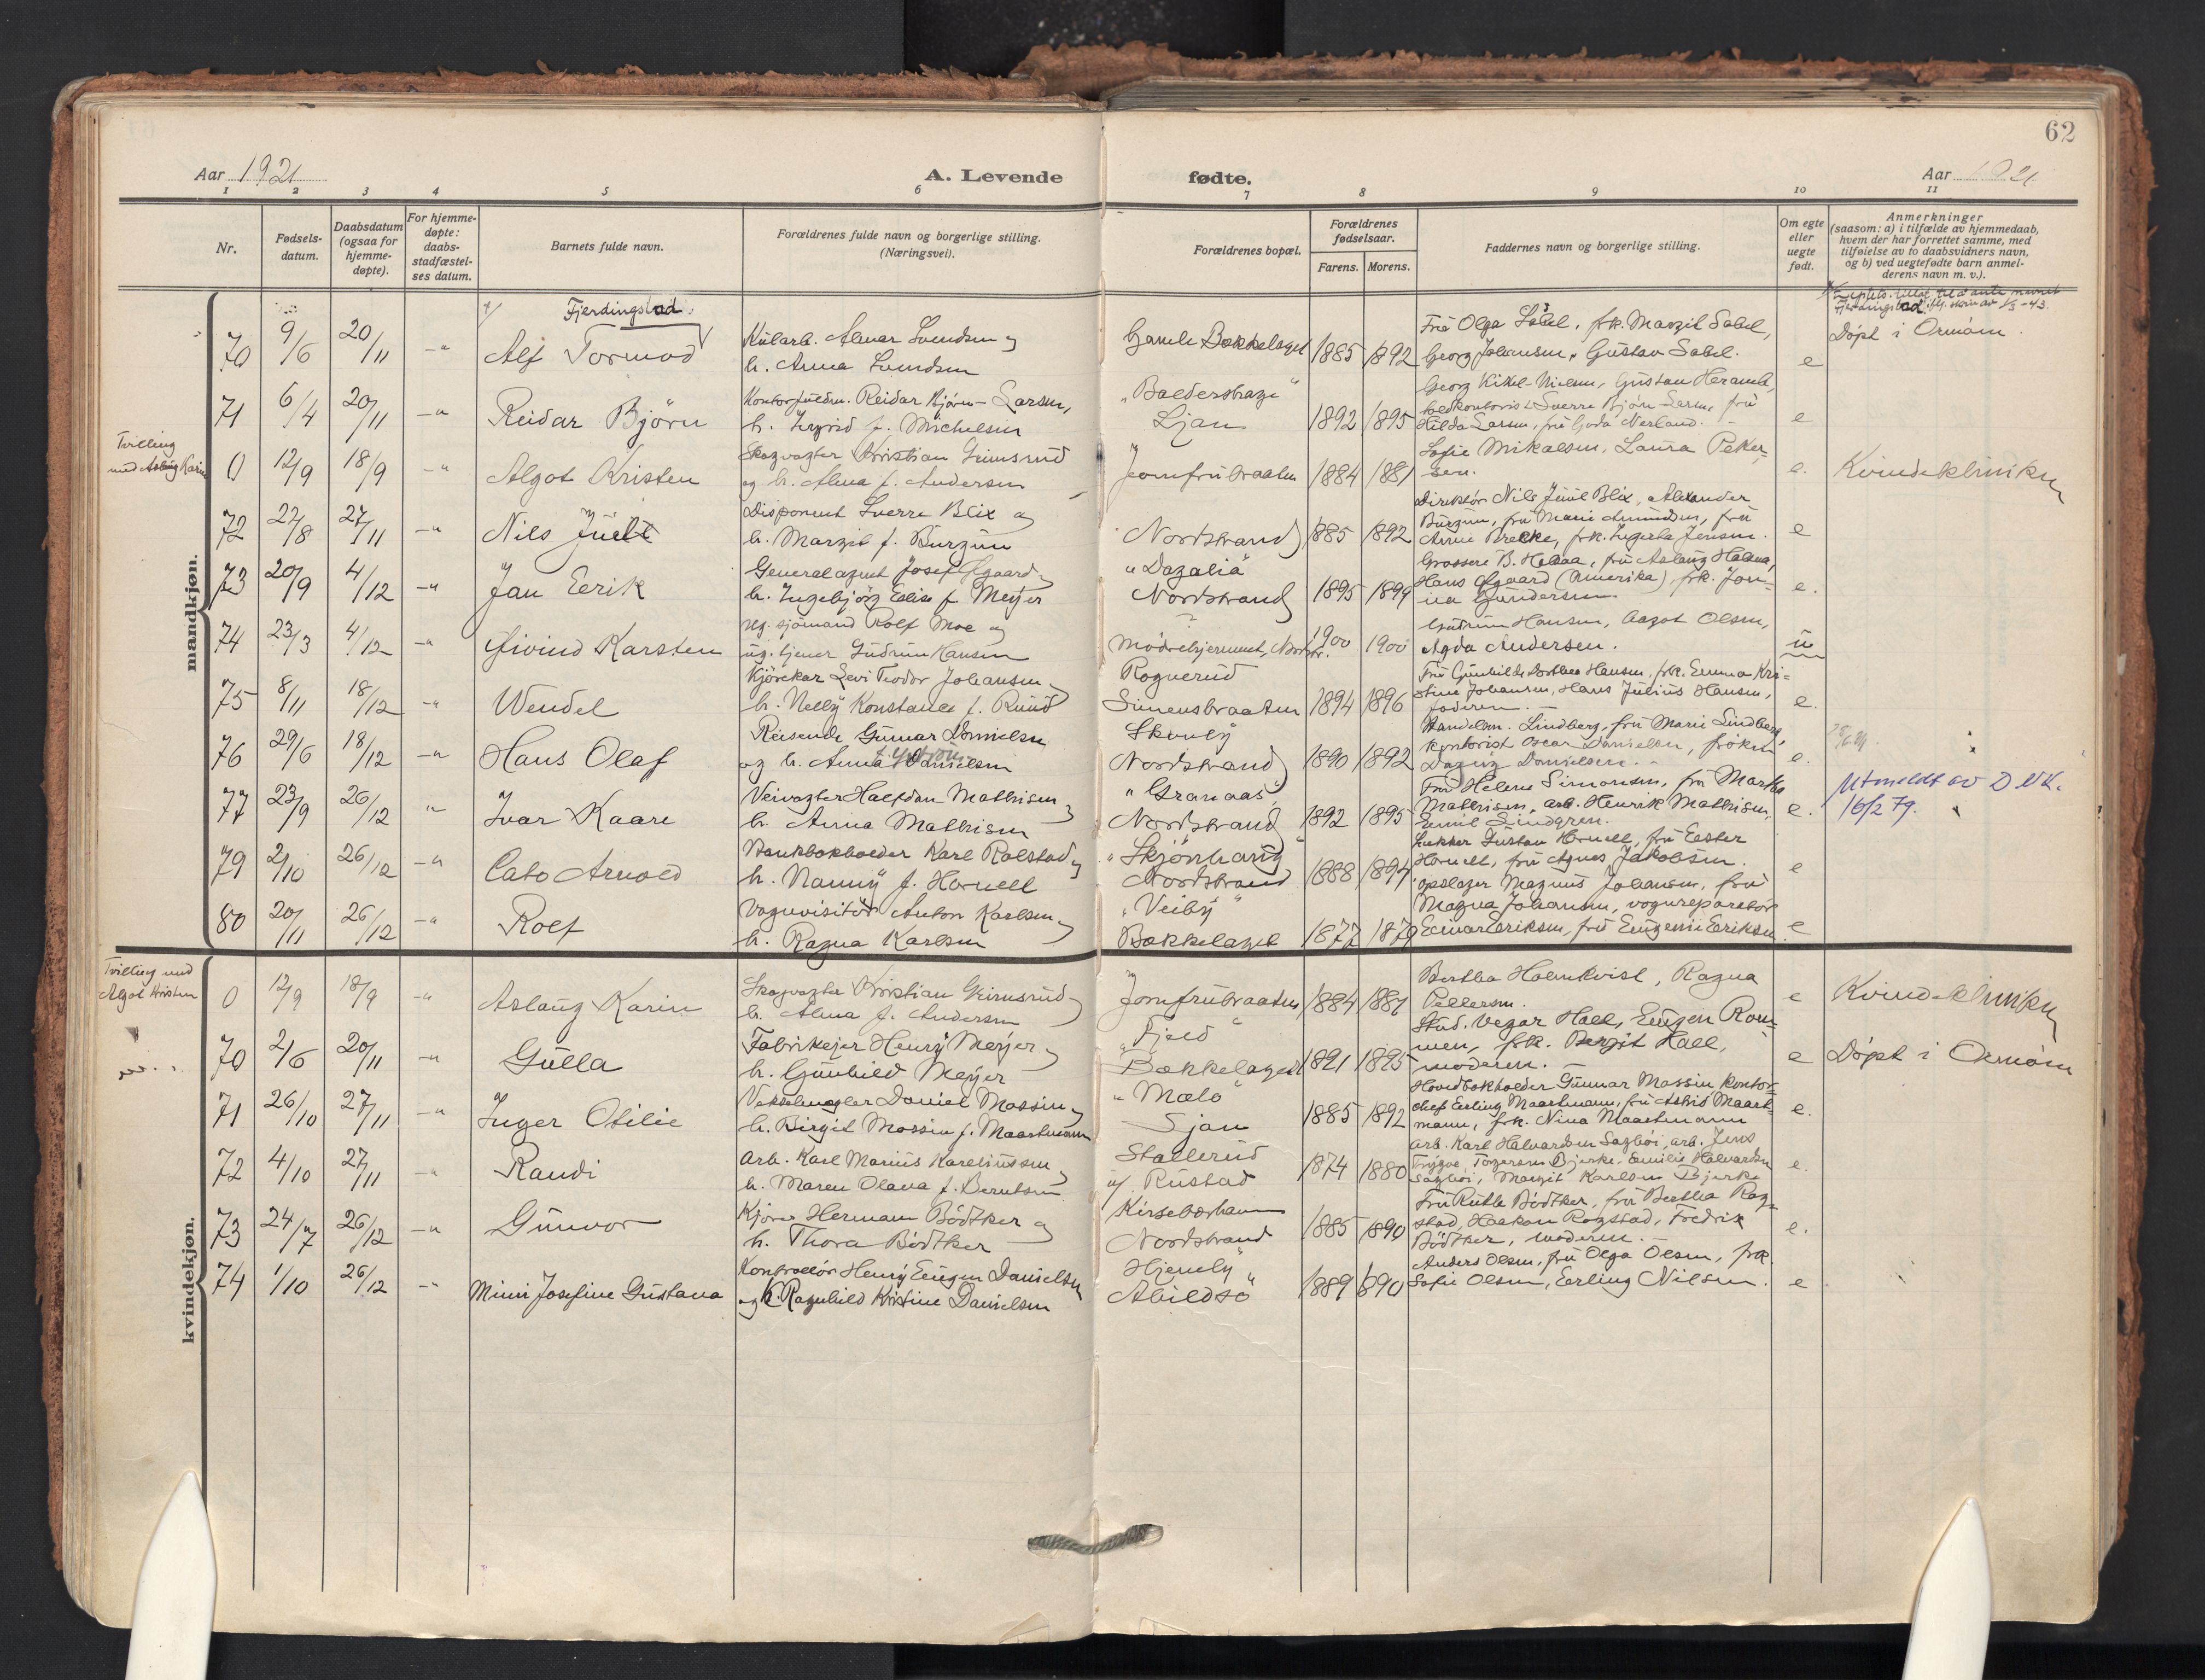 62
Aar 1921
A. Levende
fødte.
Aar 1921
1 2 3 4 5 6 7 8 9 10 11
Nr.
Fødsels-
datum.
Daabsdatum
(ogsaa for
hjemme-
døpte).
For hjemme-
døpte:
daabs-
stadfæstel-
ses datum.
Barnets fulde navn.
Forældrenes fulde navn og borgerlige stilling.
(Næringsvei).
Forældrenes bopæl.
Forældrenes
fødselsaar.
Farens. Morens.
Faddernes navn og borgerlige stilling.
Om egte
eller
uegte
født.
Anmerkninger
(saasom: a) i tilfælde av hjemmedaab,
hvem der har forrettet samme, med
tilføielse av to daabsvidners navn,
og b) ved uegtefødte barn anmel-
derens navn m. v.).
mandkjøn.
Fjerdingstad
70 9/6 20/11 -"- Alf Tormod
Almar Svendsen og
h. Anna Svendsen
Gamle Bækkelaget 1885 1892
Frü Olga Sabel, frk. Margit Sabel,
Georg Johansen, Güstav Sabel.
e
Døpt i Ormøen.
71 6/4 20/11 -"- Reidar Bjørn
Reidar Bjørn-Larsen,
h. Ingrid f. Michelsen
Ljan 1892 1895
Hilda Larsen, frü
e
Tvilling
med Aslaüg Karin
0 12/9 18/9 -"- Algot Kristen
Skogvogter Kristian Grimsrüd
og h. Alma f. Andersen
Jomfrübraaten 1884 1881
Sofie Mikalsen, Laüra Peter-
sen.
e.
Kvindekliniken
72 22/8 27/11 -"- Nils Jüell
Disponent Sverre Blix og
h. Margit f. Bürgün
Nordstrand 1885 1892
Direktør Nils Jüül Blix, Alexander
Bürgün, frü Marie Amündsen, frü
e
73 20/9 4/12 -"- Jan Eerik
Generalagent Josef Ølgaard og
h. Ingebjørg Elise f. Meyer
"Dagalid"
Nordstrand 1895 1899
Grosserer B. Helaa, frü Aslaüg Helaa,
Hans Ølgaard (Amerika), frk. Jon-
ina Gündersen.
e.
74 23/3 4/12 -"- Øivind Karsten
üg. sjømand Rolf Moe og
üg. tjener Güdrün Hansen
Mødrehjemmet, Nordstr. 1900 1900
Güdrün Hansen, Aagot Olsen,
Agda Andersen.
ü
75 8/11 18/12 -"- Wendel
Kjørekar Levi Teodor Johansen og
h. Nelly Konstance f. Rüüd
Rognerüd
Simensbraaten 1894 1896
Frü Günhilde Dorthea Hansen, frk. Emma Kri-
stine Johansen, Hans Jülius Hansen,
faderen.
e.
76 29/6 18/12 -"- Hans Olaf
Reisende Günnar Danielsen
og h. Anna Danielsen
Skovly
Nordstrand 1890 1892
Handelsm. Lindberg, frü Marie Lindberg,
kontorist Oscar Danielsen, frøken
Dagny Danielsen.
e.
77 23/9 26/12 " Ivar Kaare
Veivogter Halfdan Mathisen og
h. Anna Mathisen
"Granaas"
Nordstrand 1892 1895
Frü Helene Simonsen, frü Martha
Mathisen, arb. Henrik Mathisen,
Emil Lindgren.
e.
Utmeldt av D.N.K.
16/2 79.
79 2/10 26/12 -"- Cato Arnold
Bankbokholder Karl Rolstad og
h. Nanny f. Hornell
"Skjønhaug"
Nordstrand 1888 1894
Lækker Güstav Hornell, frü Ester
Hornell, frü Agnes Jakobsen.
e
80 20/11 26/12 -"- Rolf
Vognvisitør Anton Karlsen og
h. Ragna Karlsen
"Veiby"
Bækkelaget 1877 1879
Opslager Magnus Johansen, frü
Magna Johansen, vognreparatør
Einar Eeriksen, frü Eügenie Eeriksen
e
kvindekjøn.
Tvilling med
Algot Kristen
0 12/9 18/9 -"- Aslaüg Karin
Skogvogter Kristian Grimsrüd og
h. Alma f. Andersen
Jomfrübraaten 1884 1881
Bertha Holmkvist, Ragna
Pettersen.
e
Kvindekliniken
70 2/6 20/11 -"- Gülla
Fabrikejer Henry Meyer og
h. Günhild Meyer
"Fjeld"
Bækkelaget 1891 1895
Stüd. Vegar Hall, Eügen Rom-
men, frk. Bergit Hall,
moderen.
e
Døpt i Ormøen
71 26/10 27/11 -"- Inger Otilie
Vekselmegler Daniel Massin og
h. Birgit Massin f. Maartmann
"Mælø"
Ljan 1885 1892
Hovedbokholder Günnar Massin kontor-
chef Erling Maartmann, frü Astrid Maart-
mann, frk. Nina Maartmann
e.
72 4/10 27/11 -"- Randi
Arb. Karl Marius Kareliüssen og
h. Maren Olava f. Berntsen
Stallerüd
u/ Rüstad 1874 1880
Arb. Karl Halvardsen Sagbøi, arb. Jens
Trygve Torgersen Bjerke, Emilie Halvardsen
Sagbøi, Margit Karlsen Bjerke
e.
73 24/7 26/12 -"- Günvor
Kjører Hermann Bödtker og
h. Thora Bödtker
Kirsebærhaven
Nordstrand 1885 1890
Frü Rüth Bödtker, frü Bertha Rog-
stad, Haakon Rogstad, Fredrik
Bödtker, moderen.
e.
74 1/10 26/12 -"- Mimi Josefine Güstava
Kontrollør Henry Eügen Danielsen
og h. Ragnhild Kristine Danielsen
Hjemly
Abildsø 1889 1890
Anders Olsen, frü Olga Olsen, frk.
Sofie Olsen, Eerling Nilsen.
e